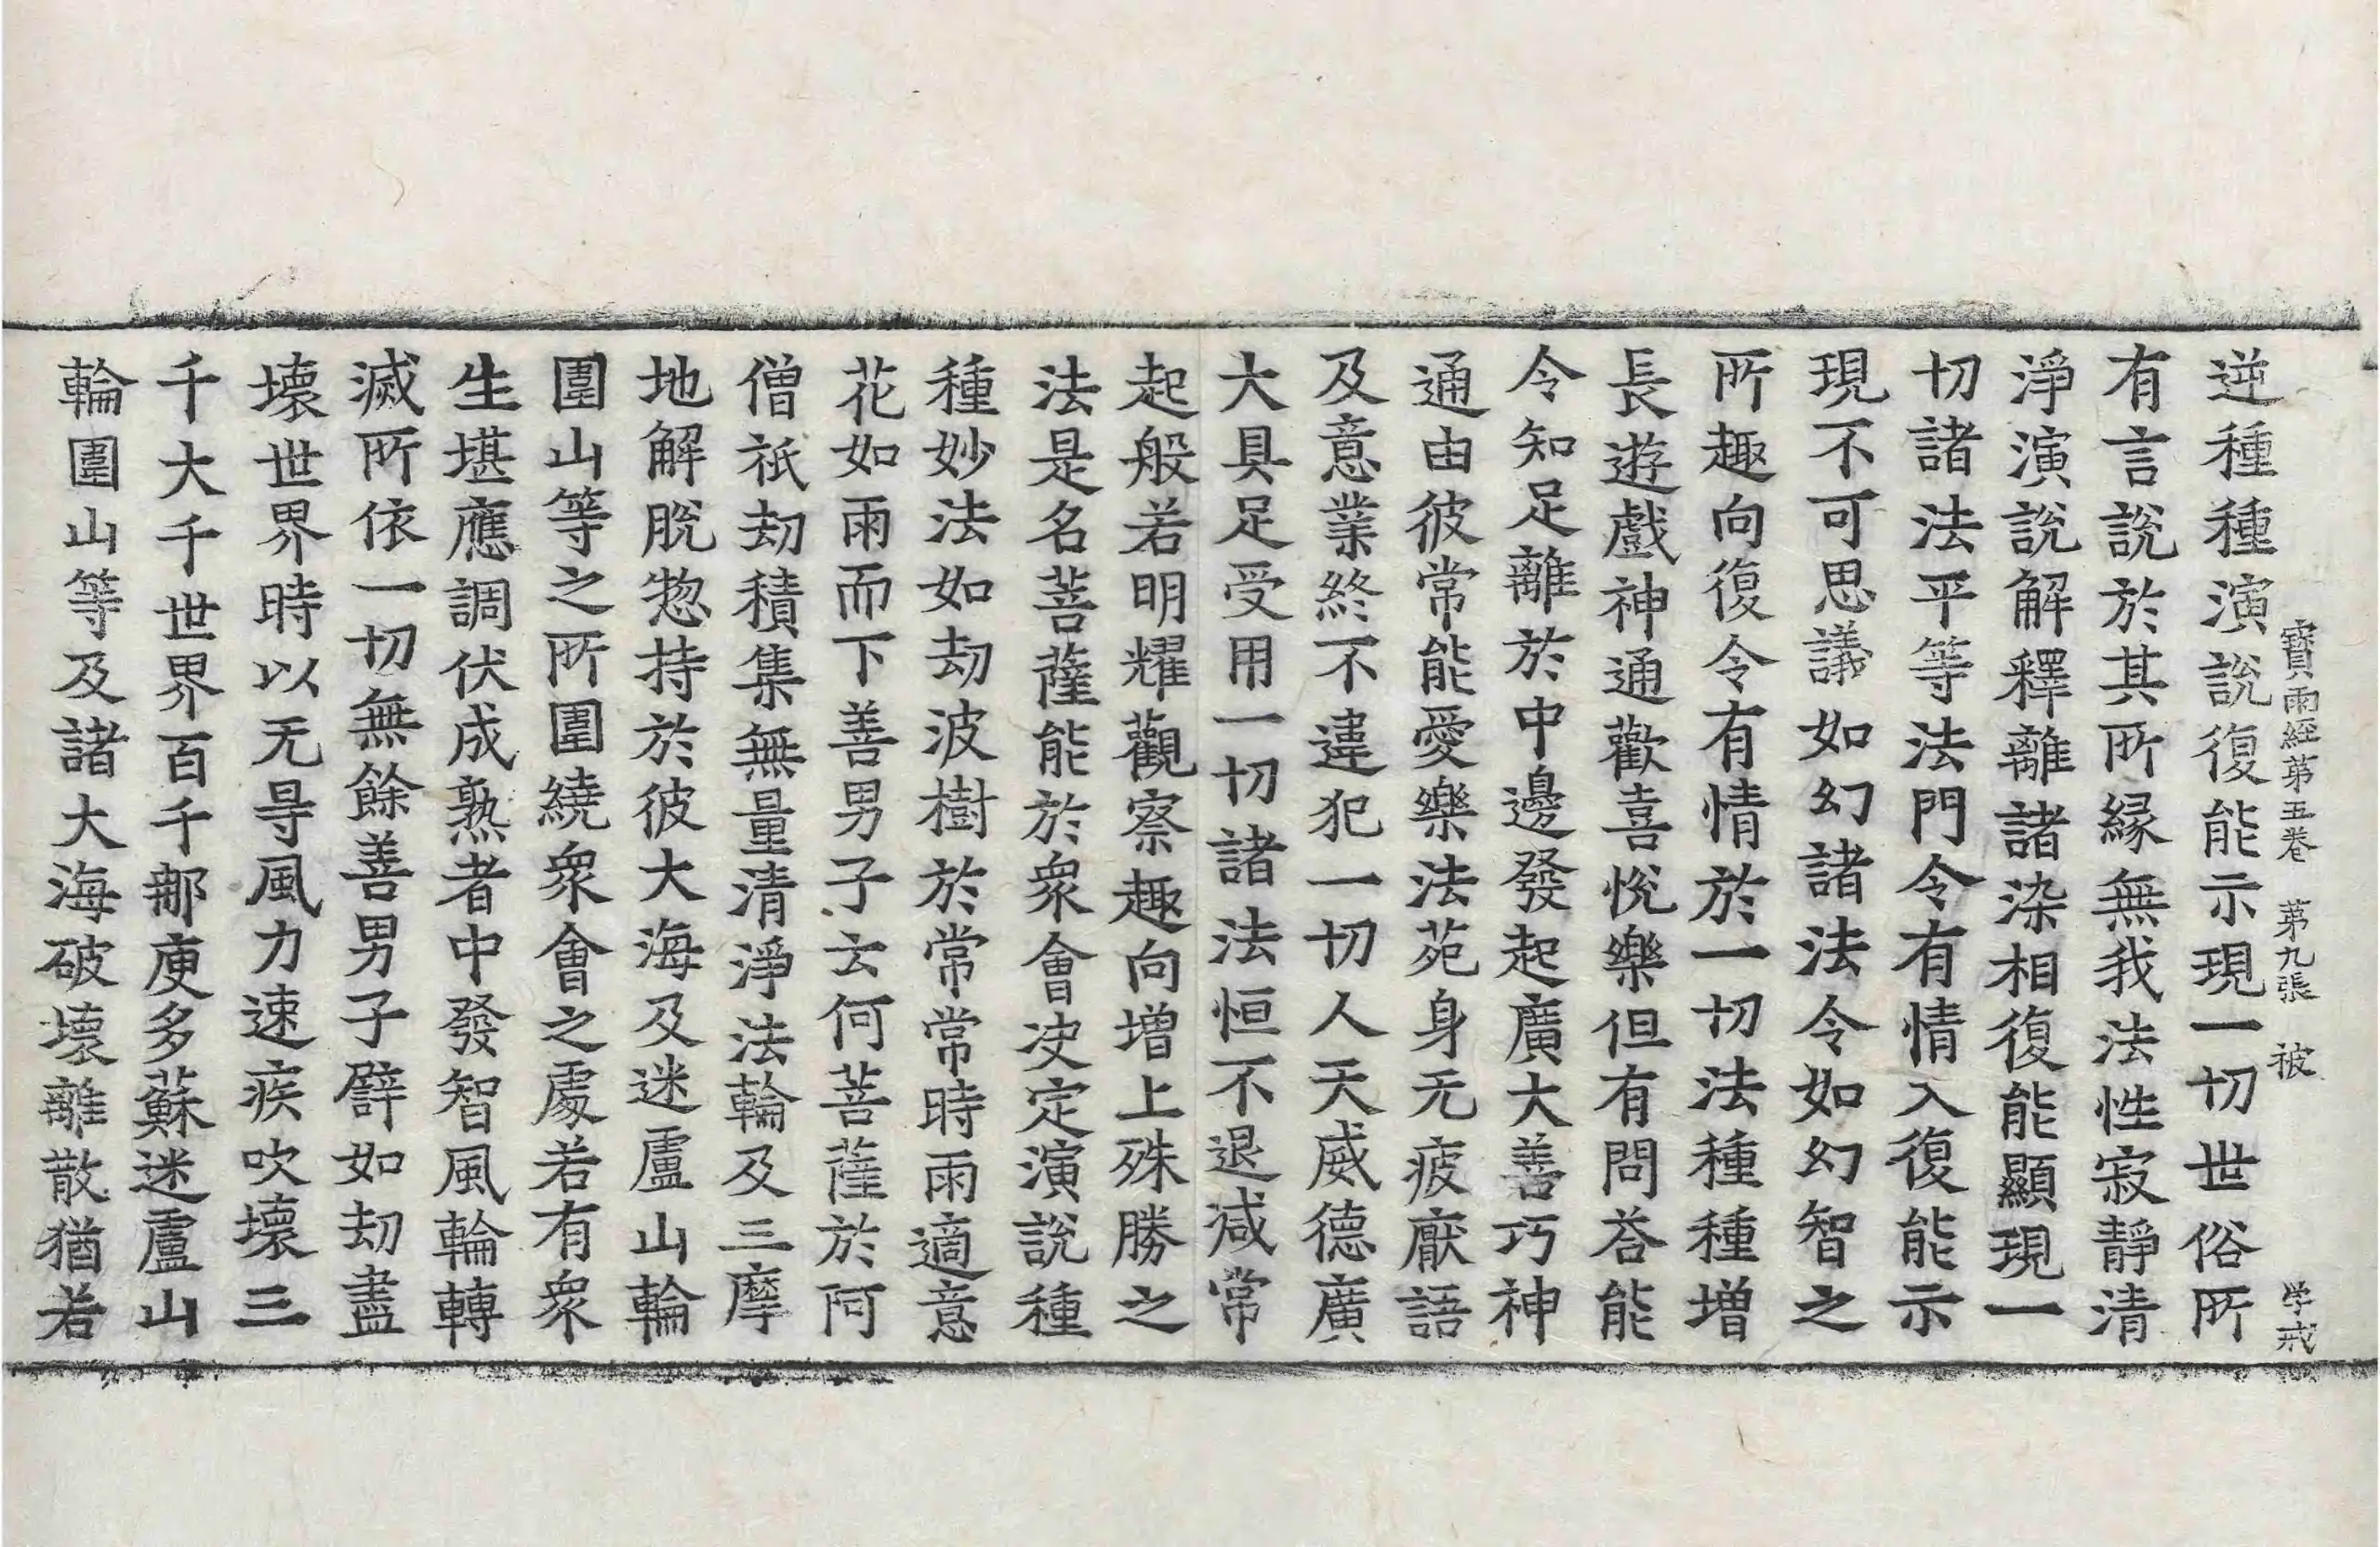 寶雨經第五卷 第九張 被 学戒
逆種種演說復能示現一切世俗所
有言說於其所緣無我法性寂靜清
淨演說解釋離諸染相復能顯現一
切諸法平等法門令有情入復能示
現不可思議如幻諸法令如幻智之
所趣向復令有情於一切法種種增
長遊戲神通歡喜悅樂但有問荅能
令知足離於中邊發起廣大善巧神
通由彼常能愛樂法苑身无疲厭語
及意業終不違犯一切人天威德廣
大具足受用一切諸法恒不退减常
起般若明耀觀察趣向增上殊勝之
法是名菩薩能於衆會决定演說種
種妙法如劫波樹於常常時雨適意
花如雨而下善男子云何菩薩於阿
僧祇劫積集無量清淨法輪及三摩
地解脫惣持於彼大海及迷盧山輪
圍山等之所圍繞衆會之處若有衆
生堪應調伏成熟者中發智風輪轉
滅所依一切無餘善男子譬如劫盡
壞世界時以无㝵風力速疾吹壞三
千大千世界百千那庾多蘇迷盧山
輪圍山等及諸大海破壞離散猶若